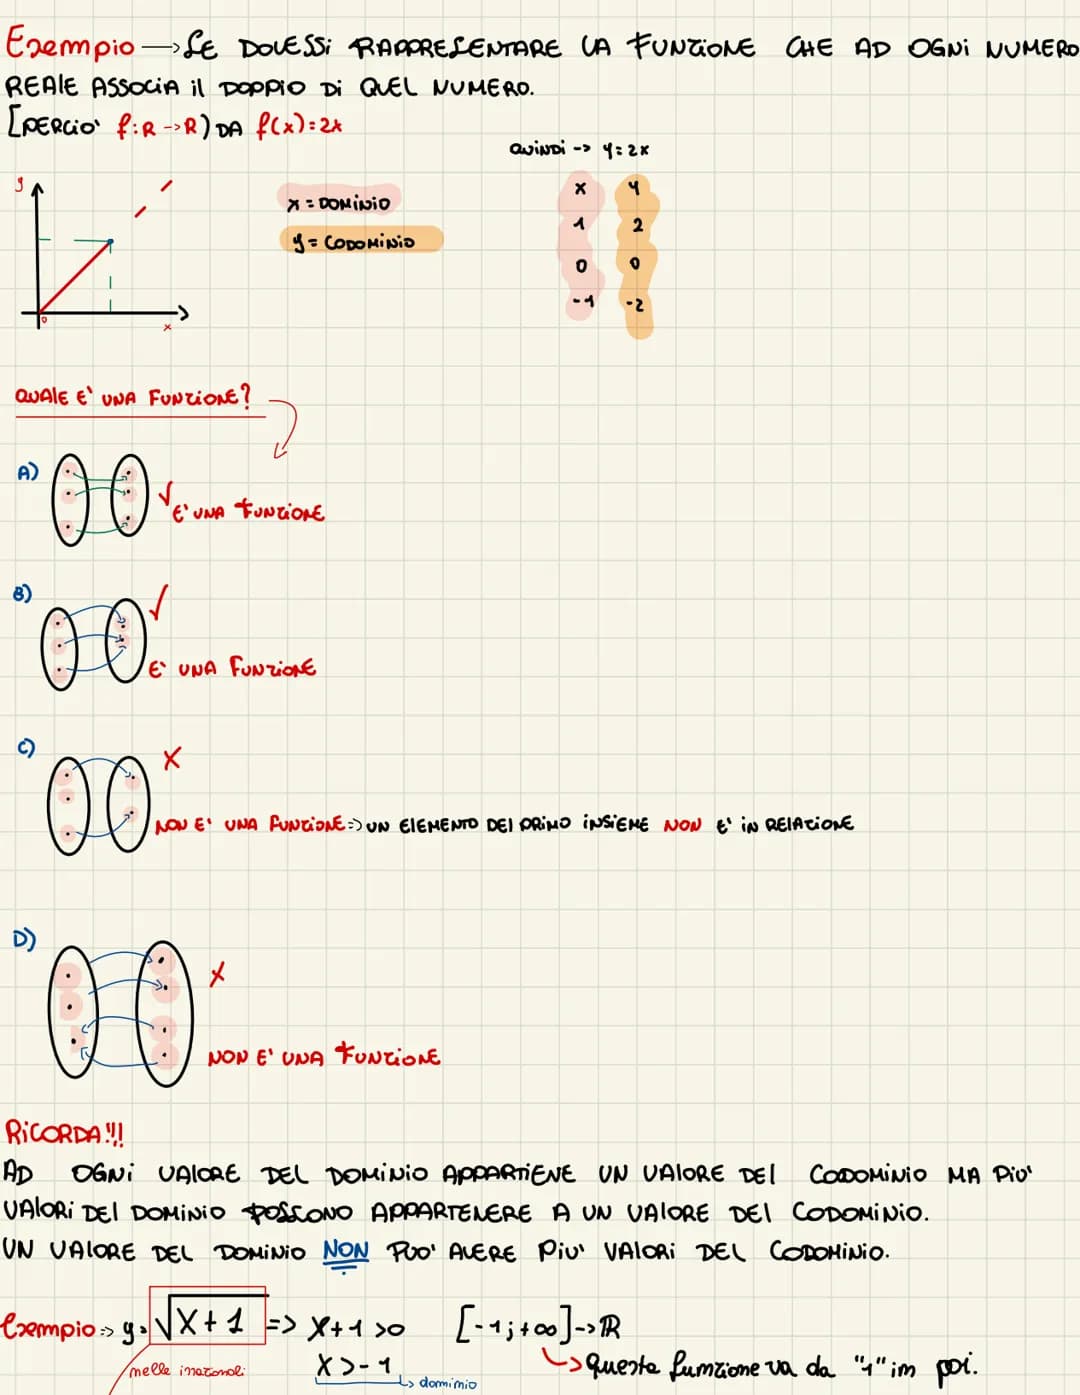 Esempio → SE DOVESSi RAPPRESENTARE LA FUNZIONE CHE AD OGNi NUMERO
REALE ASSOCIA il DOPPIO Di QUEL NUMERO.
[PERCIO' f:R->R) DA f(x)=2x
QUINDI -> y=2x
y
x = DOMINIO
x y
y = CODOMINIO
1 2
0 0
-1 -2
0
x
QUALE E' UNA FUNZIONE?
A)
√
E' UNA FUNZIONE
B)
✓
E' UNA FUNZIONE
C)
X
NON E' UNA FUNZIONE => UN ELEMENTO DEL PRIMO INSIEME NON E' IN RELAZIONE
D)
X
NON E' UNA FUNZIONE
RICORDA!!!
AD OGNI VALORE DEL DOMINIO APPARTIENE UN VALORE DEL CODOMINIO MA PIU'
VALORI DEL DOMINIO POSSONO APPARTENERE A UN VALORE DEL CODOMINIO.
UN VALORE DEL DOMINIO NON PUO' AVERE PIU' VALORI DEL CODOMINIO.
Esempio => y=√x+1 => x+1 >0 [-1;+∞]->R
nelle irrazionali x>-1 ↳ Questa funzione va da "1" in poi.
↳ dominio